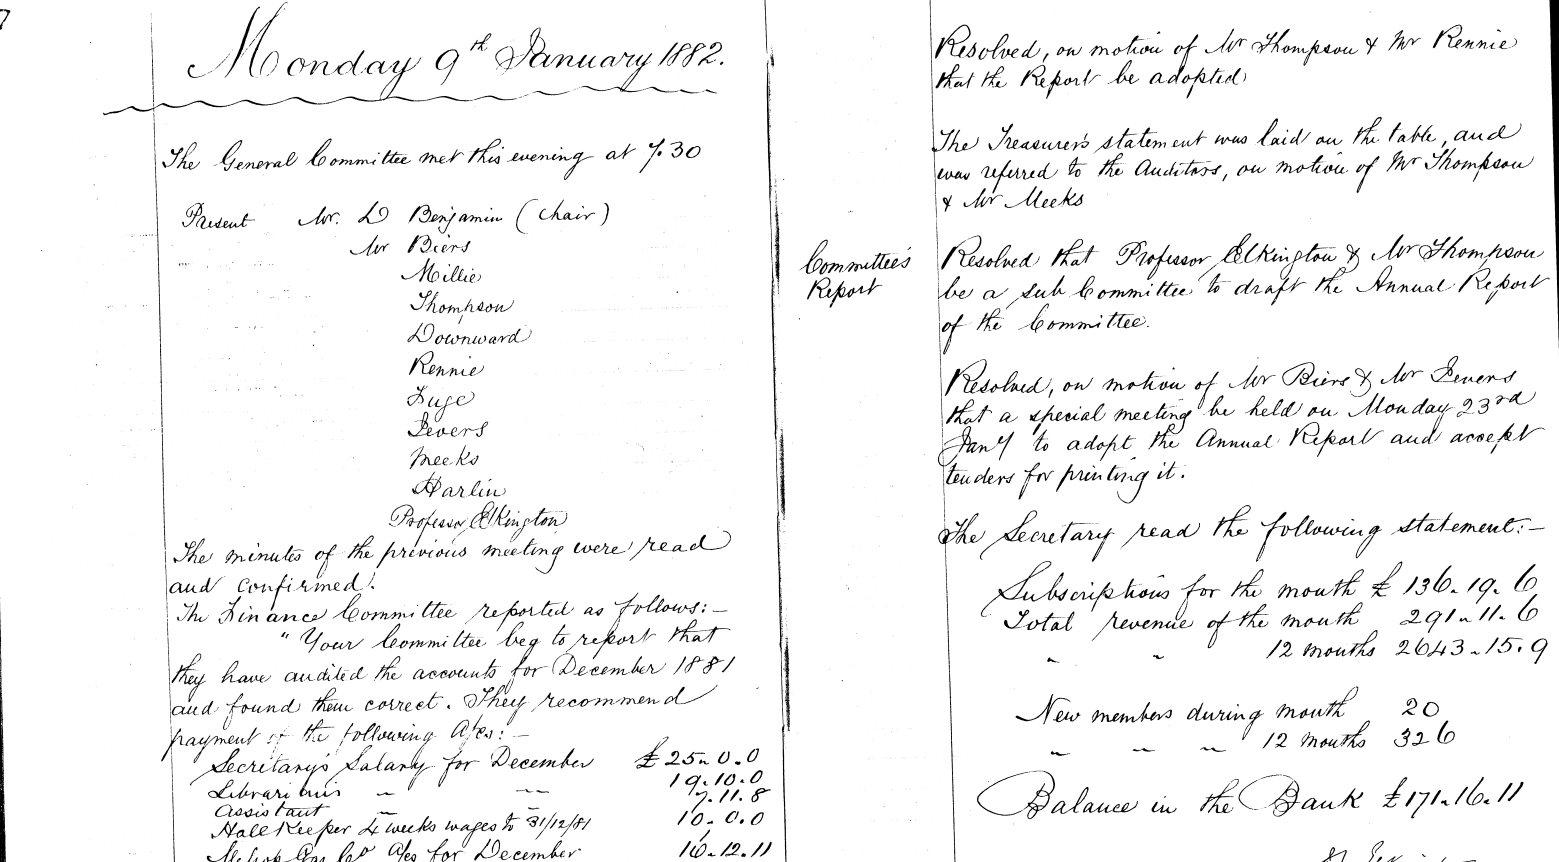 7
Monday 9th January 1882.
The General Committee met this evening at 7.30
Present Mr. D Benjamin (Chair)
Mr Biers
Millie
Thompson
Downward
Rennie
Fuge
Levers
Meeks
Harlin
Professor Elkington
The minutes of the previous meeting were read
and confirmed.
The Finance Committee reported as follows:—
"Your Committee beg to report that
they have audited the accounts for December 1881
and found them correct. They recommend
payment of the following A/cs:—
Secretary's Salary for December £25.0.0
Librarians " " 19.10.0
Assistant " 7.11.8
Hall Keeper 4 weeks wages to 31/12/81 10.0.0
Metrop Gas Co A/cs for December 16.12.11
Resolved, on motion of Mr Thompson & Mr Rennie
that the Report be adopted
The Treasurer's statement was laid on the table, and
was referred to the Auditors, on motion of Mr Thompson
& Mr Meeks
Committee's
Report
Resolved that Professor Elkington & Mr Thompson
be a sub Committee to draft the Annual Report
of the Committee.
Resolved, on motion of Mr Biers & Mr Levers
that a special meeting be held on Monday 23rd
Jany to adopt the Annual Report and accept
tenders for printing it.
The Secretary read the following statement:—
Subscriptions for the month £136.19.6
Total revenue of the month 291.11.6
" " 12 months 2643.15.9
New members during month 20
" " " 12 months 326
Balance in the Bank £171.16.11